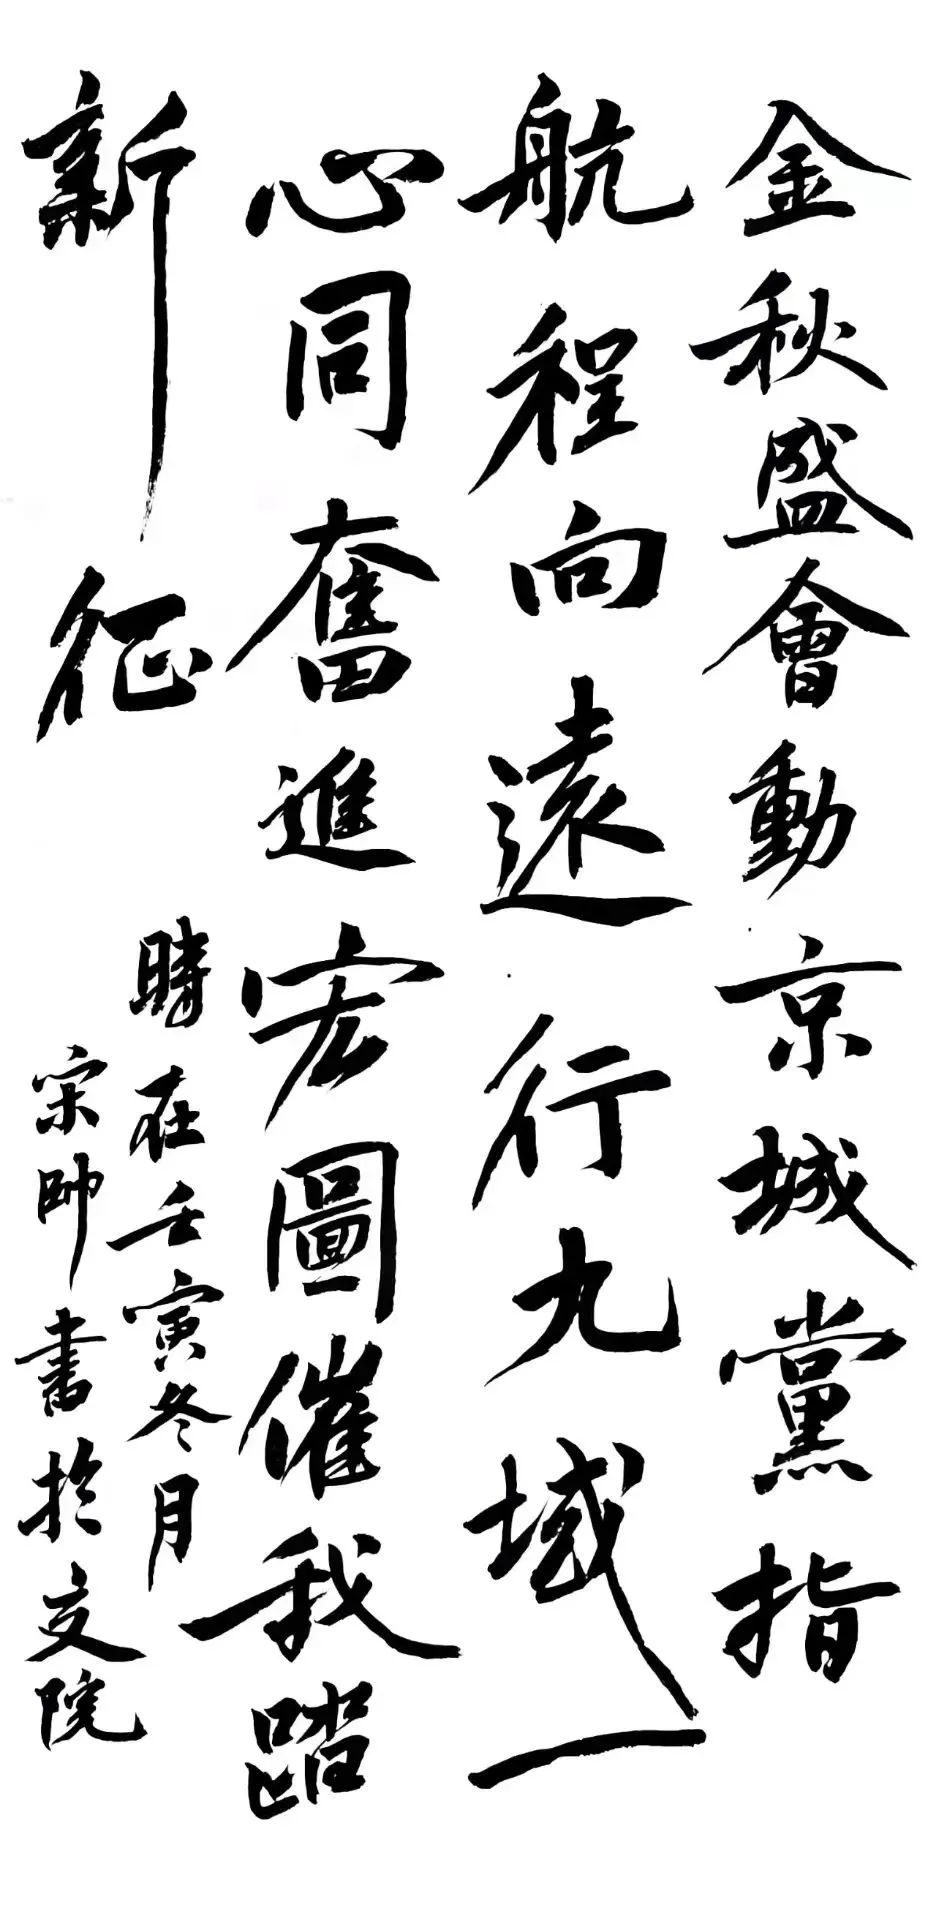 金秋盛會動京城黨指
航程向遠行九域一
心同奮進宏圖催我踏
新征
時在壬寅冬月
宋帥書於文院